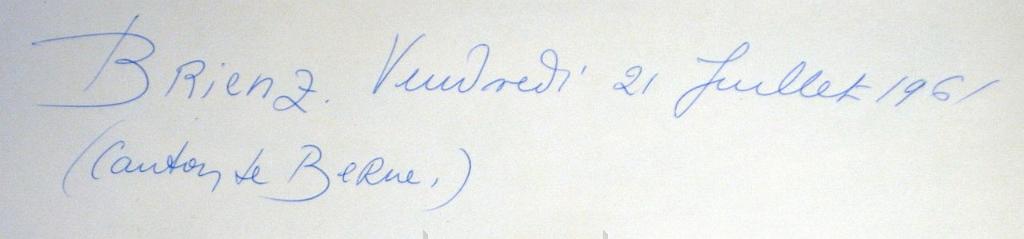 Brienz. Vendredi 21 Juillet 1961
(Canton de Berne.)